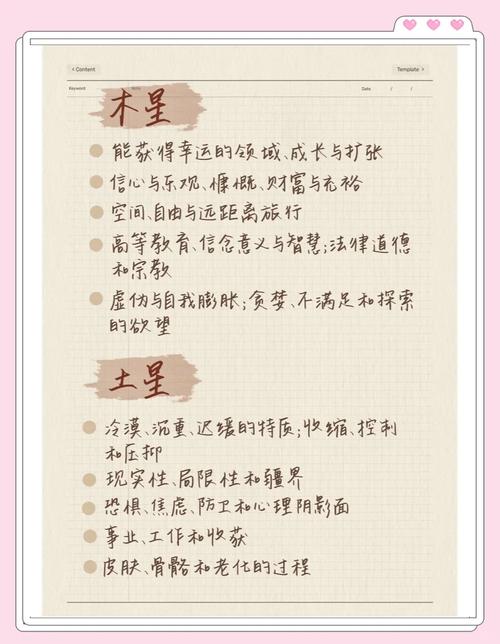 < Content
Template >
Keyword
Date / /
木星
能获得幸运的领域、成长与扩张
信心与乐观、慷慨、财富与充裕
空间、自由与远距离旅行
高等教育、信念意义与智慧;法律道德
和宗教
虚伪与自我膨胀;贪婪、不满足和探索
的欲望
土星
冷漠、沉重、迟缓的特质;收缩、控制
和压抑
现实性、局限性和疆界
恐惧、焦虑、防卫和心理阴影面
事业、工作和收获
皮肤、骨骼和老化的过程